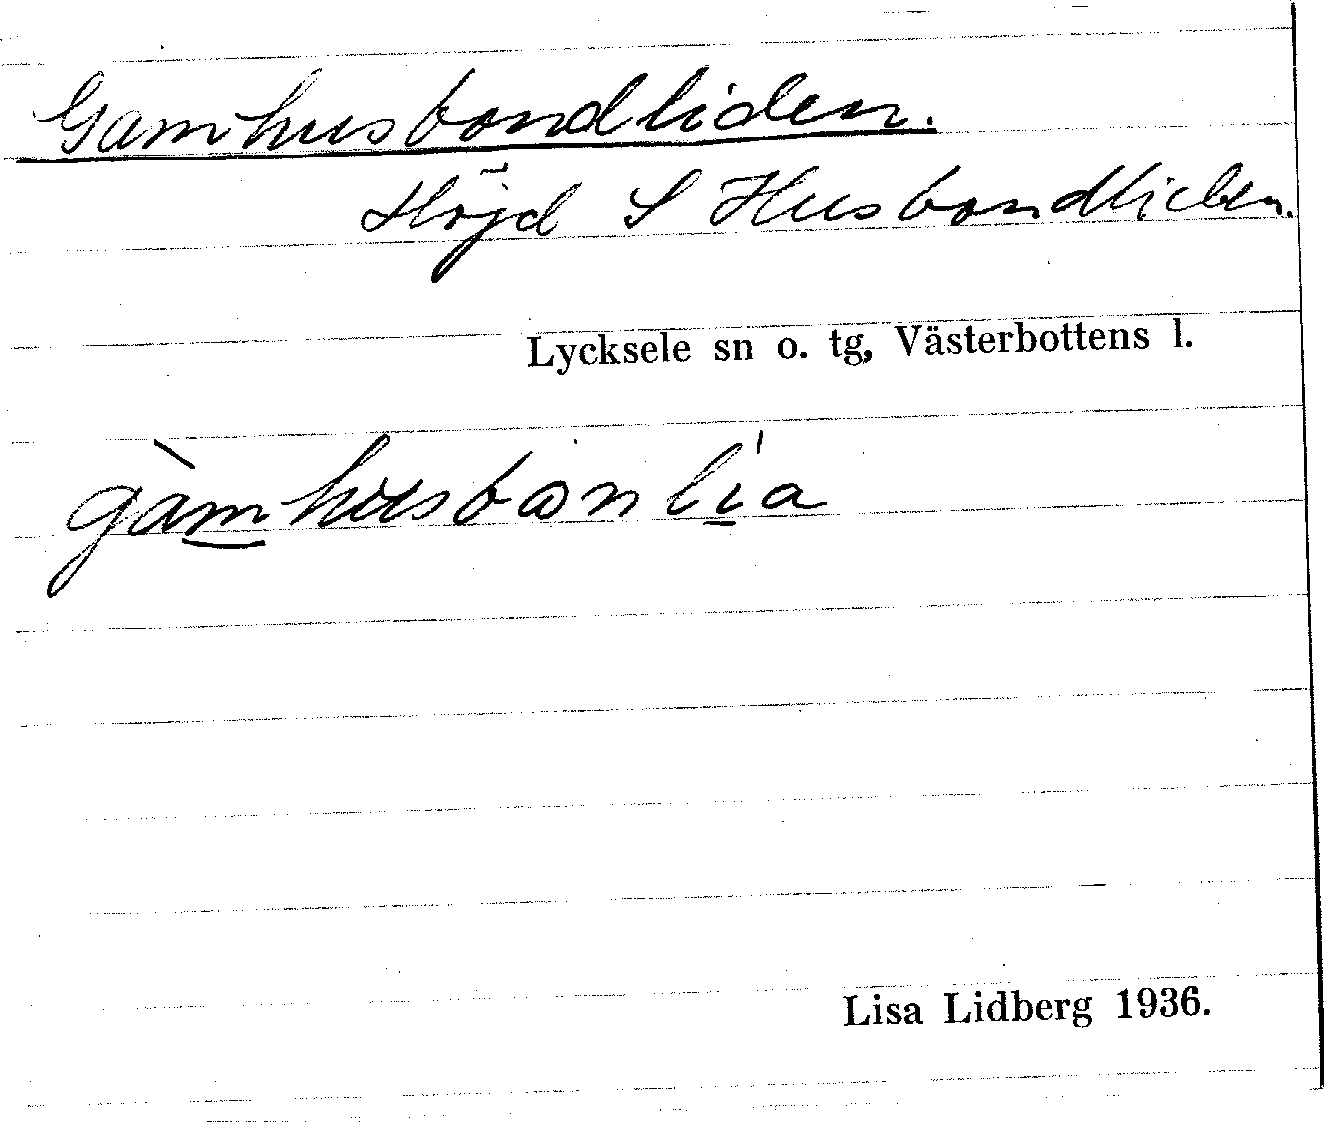 Gamhusbondliden.
Höjd S Husbondliden.
Lycksele sn o. tg, Västerbottens l.
gàmhusbɷnlí̱a
Lisa Lidberg 1936.